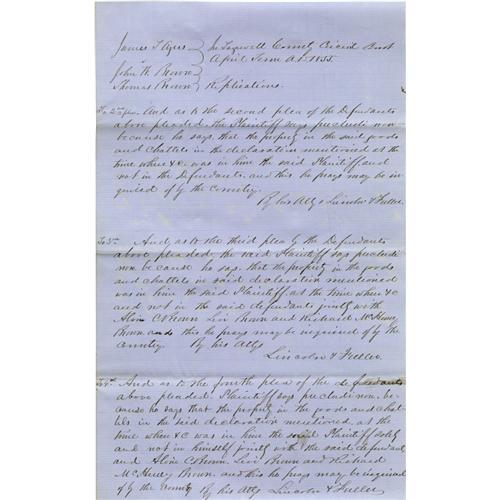 James T Ayers } In Tazewell County Circuit Court
vs } April Term A.D. 1855.
John W. Brown
Thomas Brown } Replications.
To 2nd plea And as to the second plea of the Defendants
above pleaded the Plaintiff says precludi non
because he says, that the property in the said goods
and chattels in the declaration mentioned at the
time where &c. was in him the said Plaintiff, and
not in the Defendants, and this he prays may be in
quired of by the Country.
By his Attys Lincoln & Fuller.
To 3rd And as to the third plea by the Defendants
above pleaded, the said Plaintiff says precludi
non, because he says, that the property in the goods
and chattels in said declaration mentioned
was in him the said Plaintiff at the time where &c
and not in the said defendants jointly with
Brown Levi Brown and Richard McHenry
Brown and this he prays may be inquired of by the
Country. By his Attys
Lincoln & Fuller.
To 4th And as to the fourth plea of the defendants
above pleaded. Plaintiff says precludi non, be-
cause he says that the property in the goods and chat-
tels in the said declaration mentioned, at the
time where &c was in him the said Plaintiff solely
and not in himself jointly with the said defendants
and Brown, Levi Brown and Richard
McHenry Brown, and this he prays may be inquired
of by the Country By his Attys Lincoln & Fuller